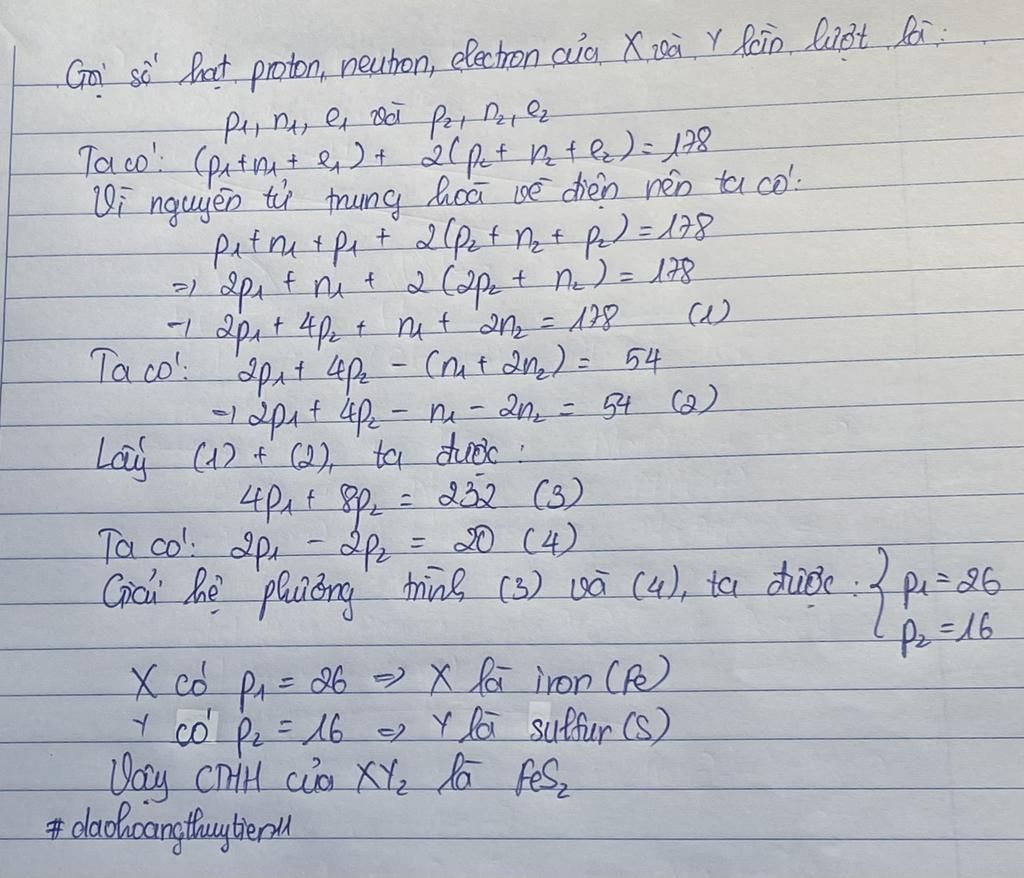 Gọi số hạt proton, neutron, electron của X và Y lần lượt là:
p₁, n₁, e₁ và p₂, n₂, e₂
Ta có: (p₁+n₁+e₁) + 2(p₂+n₂+e₂)=178
Vì nguyên tử trung hoà về điện nên ta có:
p₁+n₁+p₁ + 2(p₂+n₂+p₂)=178
=> 2p₁ + n₁ + 2(2p₂ + n₂) = 178
=> 2p₁ + 4p₂ + n₁ + 2n₂ = 178 (1)
Ta có: 2p₁ + 4p₂ - (n₁ + 2n₂) = 54
=> 2p₁ + 4p₂ - n₁ - 2n₂ = 54 (2)
Lấy (1) + (2), ta được:
4p₁ + 8p₂ = 232 (3)
Ta có: 2p₁ - 2p₂ = 20 (4)
Giải hệ phương trình (3) và (4), ta được: { p₁ = 26
p₂ = 16
X có p₁ = 26 => X là iron (Fe)
Y có p₂ = 16 => Y là sulfur (S)
Vậy CTHH của XY₂ là FeS₂
#daohoangthuytien11